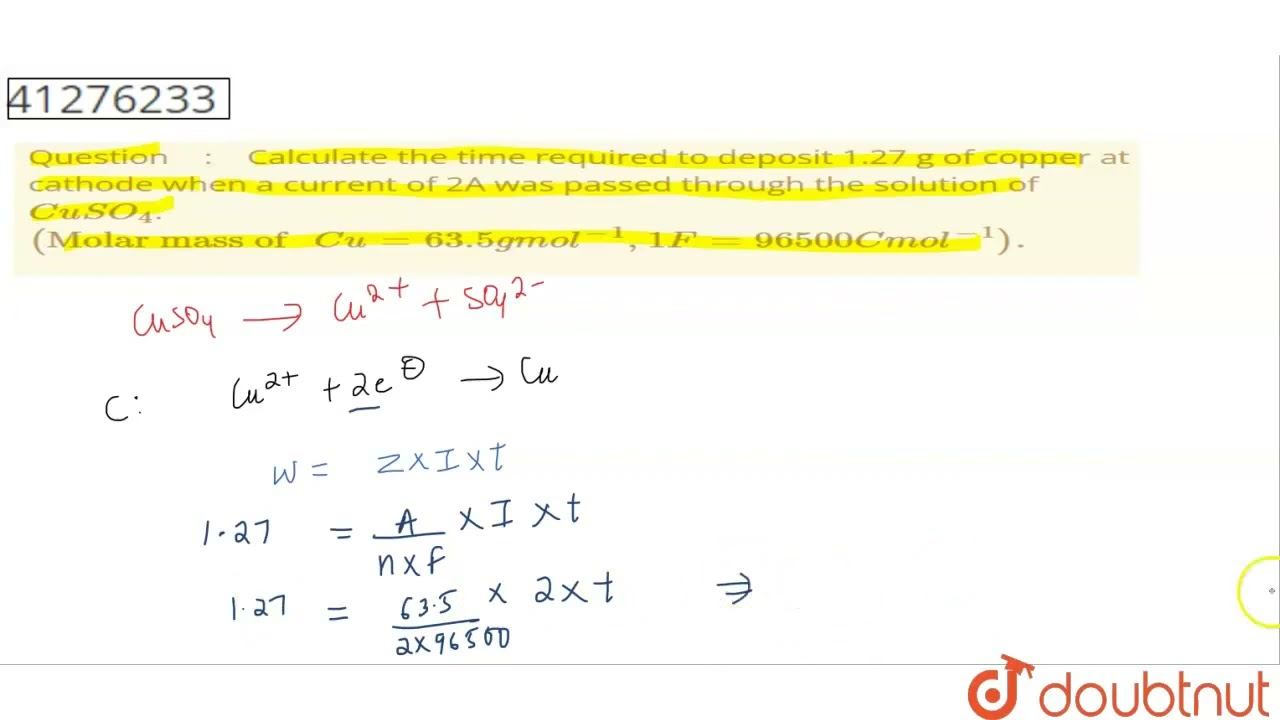 41276233
Question : Calculate the time required to deposit 1.27 g of copper at
cathode when a current of 2A was passed through the solution of
CuSO₄.
(Molar mass of Cu = 63.5gmol⁻¹, 1F = 96500Cmol⁻¹).
CuSO₄ ⟶ Cu²⁺ + SO₄²⁻
C: Cu²⁺ + 2e⊖ → Cu
W = Z×I×t
1.27 = A/(n×F) × I × t
1.27 = 63.5/(2×96500) × 2×t ⇒
doubtnut